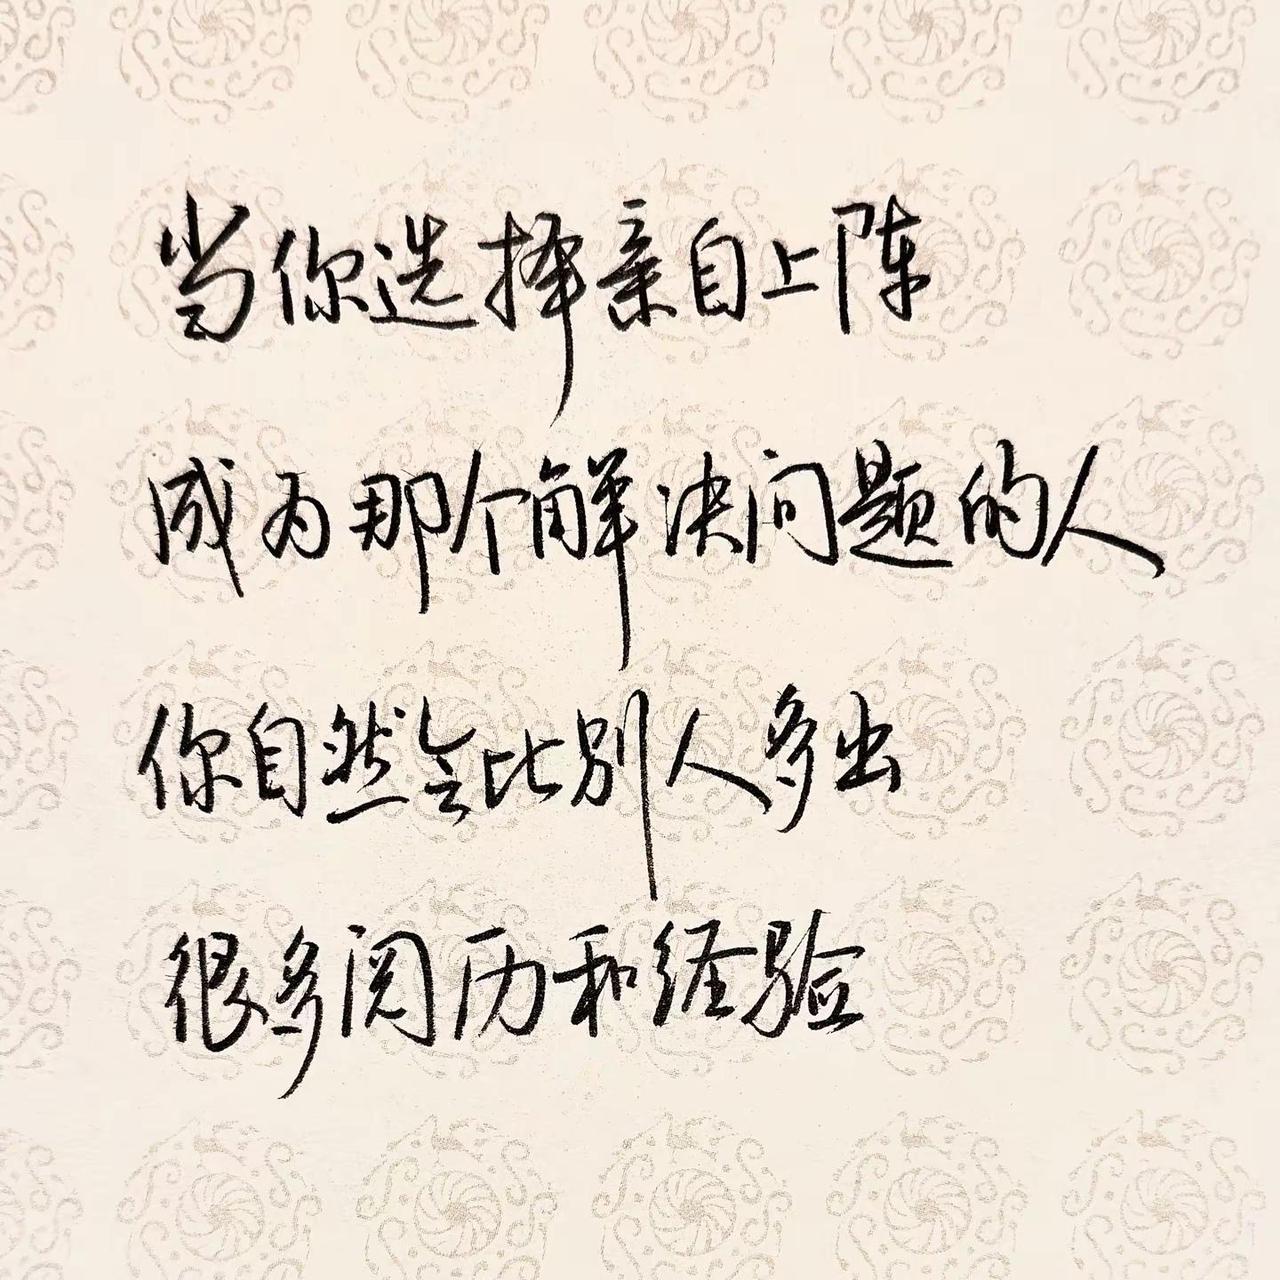 当你选择亲自上阵
成为那个解决问题的人
你自然会比别人多出
很多阅历和经验